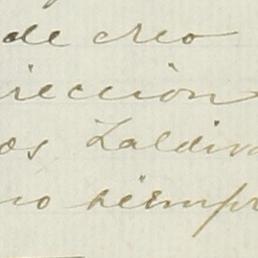 de creo
irección
os Zaldiva
no siempr